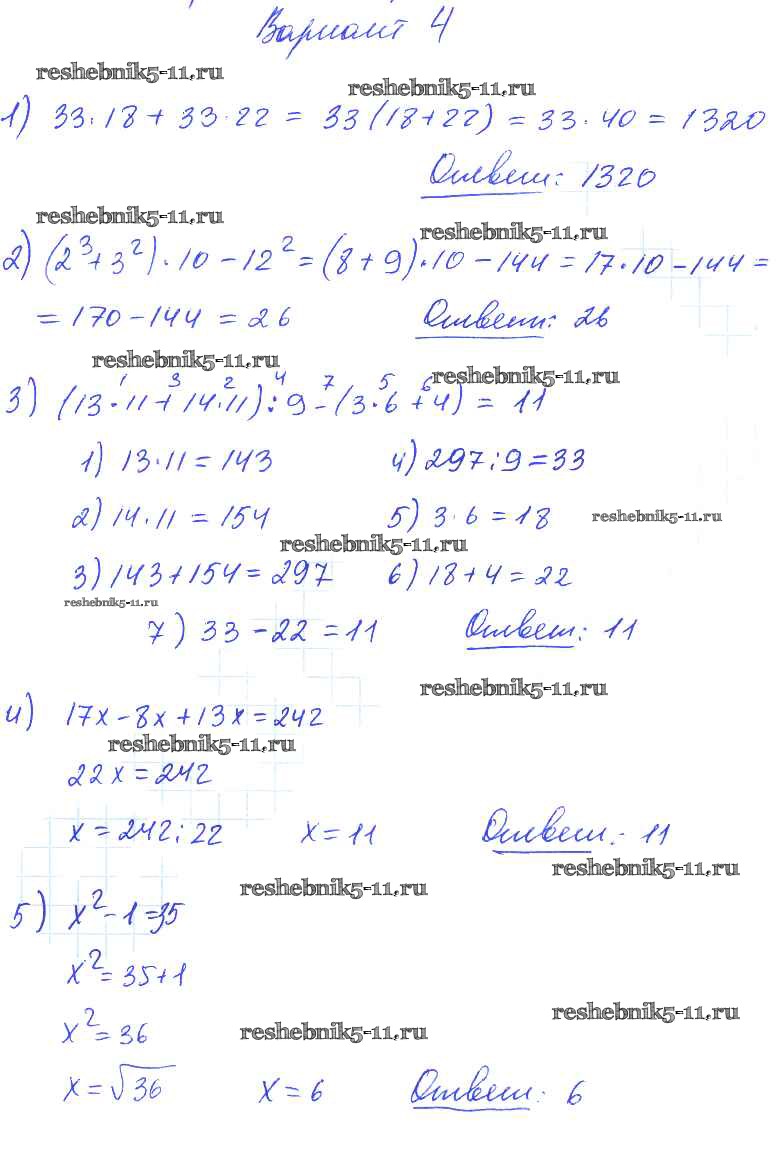 Вариант 4
reshebnik5-11.ru
reshebnik5-11.ru
1) 33·18 + 33·22 = 33(18+22) = 33·40 = 1320
Ответ: 1320
reshebnik5-11.ru
reshebnik5-11.ru
2) (2³+3²)·10 - 12² = (8+9)·10 - 144 = 17·10 - 144 =
= 170 - 144 = 26
Ответ: 26
reshebnik5-11.ru
reshebnik5-11.ru
1 3 2 4 7 5 6
3) (13·11 + 14·11) : 9 - (3·6 + 4) = 11
1) 13·11 = 143 4) 297:9 = 33
2) 14·11 = 154 5) 3·6 = 18
reshebnik5-11.ru
reshebnik5-11.ru
3) 143+154 = 297 6) 18+4 = 22
reshebnik5-11.ru
7) 33 - 22 = 11 Ответ: 11
reshebnik5-11.ru
4) 17x - 8x + 13x = 242
reshebnik5-11.ru
22x = 242
x = 242:22 x = 11 Ответ: 11
reshebnik5-11.ru
reshebnik5-11.ru
5) x² - 1 = 35
x² = 35+1
reshebnik5-11.ru
x² = 36
reshebnik5-11.ru
x = √36 x = 6 Ответ: 6